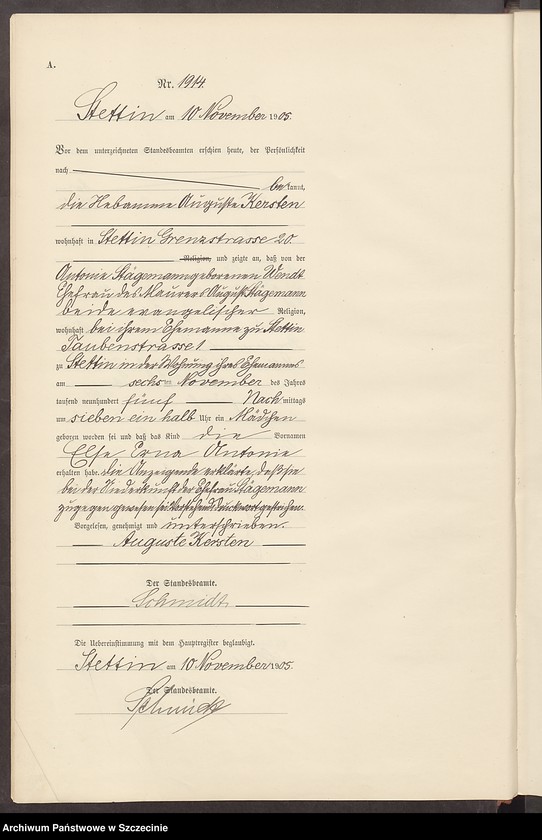 A.
Nr. 1914.
Stettin am 10 November 1905.
Vor dem unterzeichneten Standesbeamten erschien heute, der Persönlichkeit
nach
be kannt,
die Hebamme Auguste Kersten
wohnhaft in Stettin Grenzstrasse 20.
Religion, und zeigte an, daß von der
Antonie Stägemann geborenen Wendt
Ehefrau des Maurers August Stägemann
beide evangelischer Religion,
wohnhaft bei ihrem Ehemanne zu Stettin
Taubenstrasse 1
zu Stettin in der Wohnung ihres Ehemannes
am sechsten November des Jahres
tausend neunhundert fünf Nach mittags
um sieben ein halb Uhr ein Mädchen
geboren worden sei und daß das Kind die Vornamen
Else Erna Antonie
erhalten habe. die Anzeigende erklärte, daß sie
bei der Niederkunft der Ehefrau Stägemann
zugegen gewesen sei. Vorstehend Druckwort gestrichen.
Vorgelesen, genehmigt und unterschrieben.
Auguste Kersten
Der Standesbeamte.
Schmidt.
Die Uebereinstimmung mit dem Hauptregister beglaubigt.
Stettin am 10 November 1905.
Der Standesbeamte.
Schmidt
Archiwum Państwowe w Szczecinie